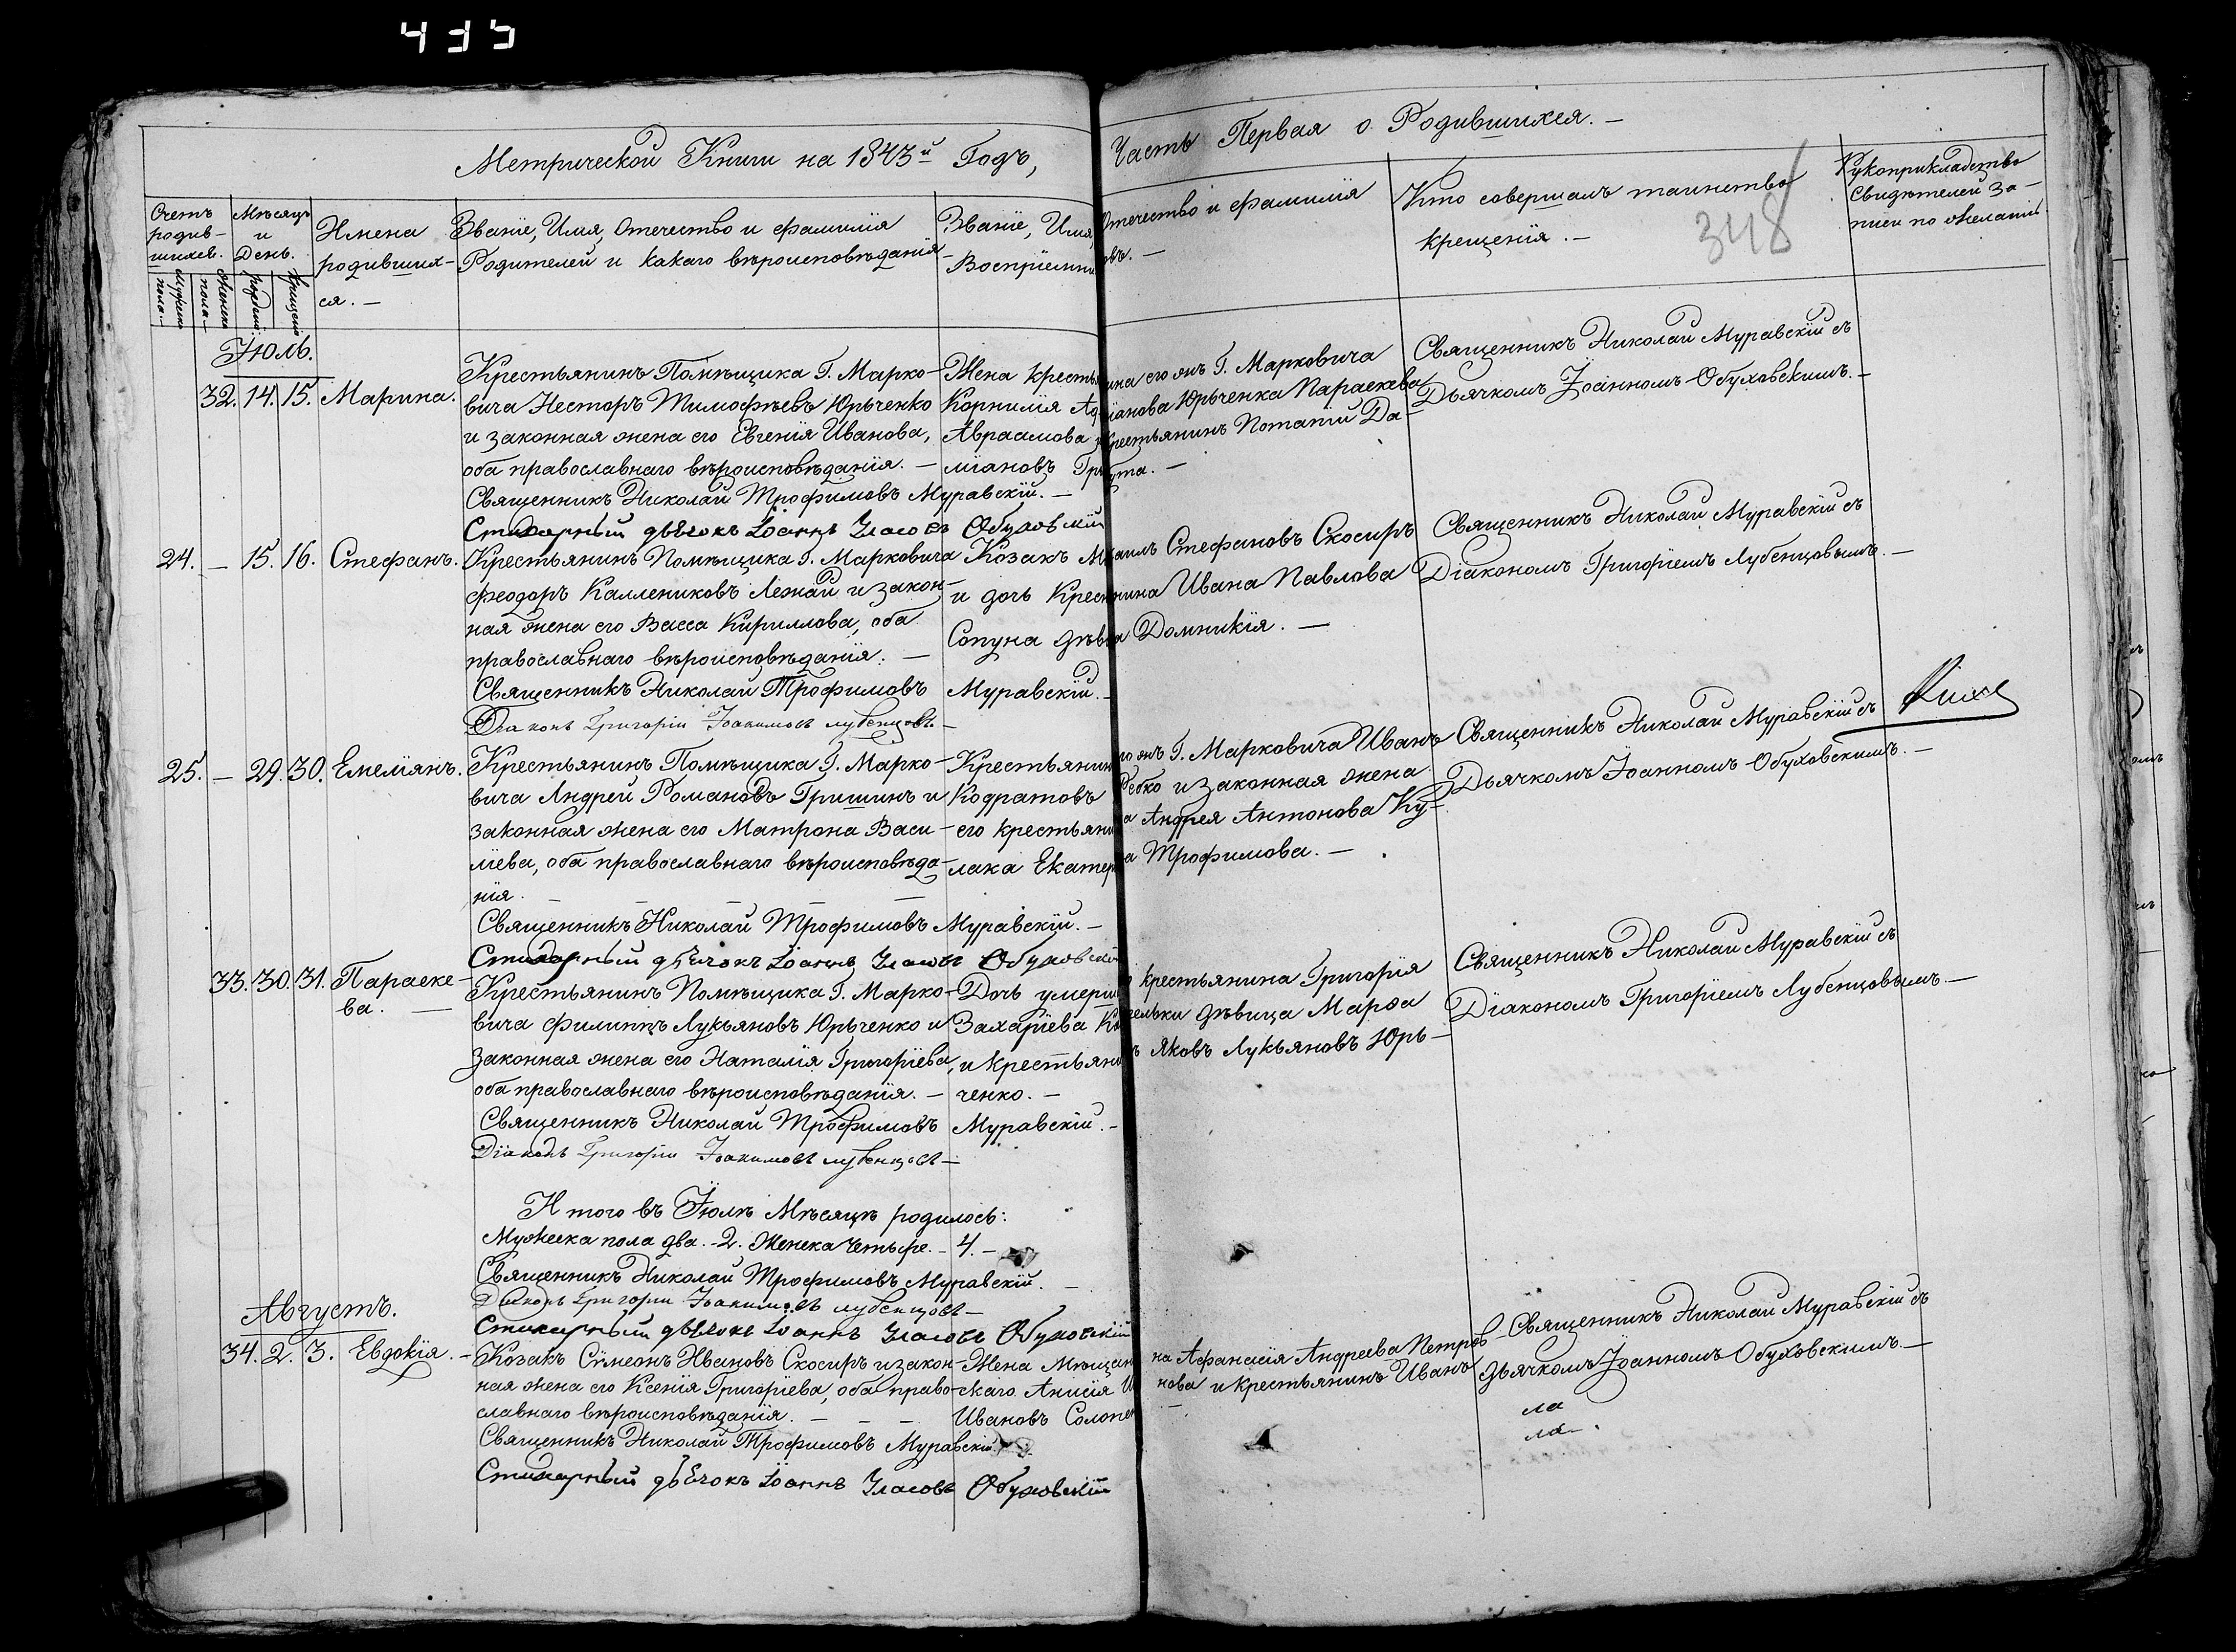 435
Метрической Книги на 1843й Годъ,
Часть Первая о Родившихся. —
348
Счетъ родив- шихся.
Мужеска пола. —
Женска пола —
Мѣсяцъ и День.
рожденія
крещенія
Имена
родивших-
ся. —
Званіе, Имя, Отечество и фамилия
Родителей и какаго вѣроисповѣданія
Званіе, Имя, Отечество и фамилія
Воспріемниковъ. —
Кто совершалъ таинство
крещенія. —
Рукоприкладство
Свидѣтелей за-
писи по желанію
Іюль.
32. 14. 15. Марина.
Крестьянинъ Помѣщика Г. Марко-
вича Несторъ Тимофѣевъ Юрьченко
и законная жена его Евгенія Иванова,
оба православнаго вѣроисповѣданія. —
Жена крестьянина его жъ Г. Марковича
Корнилія Юрьченка Параскева
Авраамова крестьянинъ Потапій Да-
міановъ
Священникъ Николай Муравскій съ
Дьячкомъ Іоанномъ Обуховскимъ. —
Священникъ Николай Трофимовъ Муравскій. —
Стихарный дьячокъ Іоаннъ Власовъ Обуховскій
24. — 15. 16. Стефанъ.
Крестьянинъ Помѣщика Г. Марковича
Феодоръ Каллениковъ Лежай и закон-
ная жена его Васса Кириллова, оба
православнаго вѣроисповѣданія. —
Козакъ Михаилъ Стефановъ Скосиръ
и дочь Крестьянина Ивана Павлова
Сопуна дѣвка Домникія. —
Священникъ Николай Муравскій съ
Діакономъ Григоріемъ Лубенцовымъ. —
Священникъ Николай Трофимовъ Муравскій. —
Діаконъ Григорій Іоакимовъ Лубенцовъ —
25. — 29. 30. Емеліянъ.
Крестьянинъ Помѣщика Г. Марко-
вича Андрей Романовъ Гришинъ и
законная жена его Матрона Васи-
ліева, оба православнаго вѣроисповѣда-
нія. —
Крестьянинъ его жъ Г. Марковича Иванъ
Кодратовъ Рѣбко и законная жена
его крестьянина Андрея Антонова Ку-
лака Екатерина Трофимова. —
Священникъ Николай Муравскій съ
Дьячкомъ Іоанномъ Обуховскимъ. —
Священникъ Николай Трофимовъ Муравскій. —
Стихарный дьячокъ Іоаннъ Власовъ Обуховскій
33. 30. 31. Параске-
ва. —
Крестьянинъ Помѣщика Г. Марко-
вича Филиппъ Лукьяновъ Юрьченко и
законная жена его Наталія Григоріева,
оба православнаго вѣроисповѣданія. —
Дочь умершаго крестьянина Григорія
Захаріева дѣвица Марѳа
и крестьянинъ Яковъ Лукьяновъ Юрь-
ченко. —
Священникъ Николай Муравскій съ
Діакономъ Григоріемъ Лубенцовымъ. —
Священникъ Николай Трофимовъ Муравскій. —
Діаконъ Григорій Іоакимовъ Лубенцовъ —
И того въ Іюлѣ Мѣсяцѣ родилось:
Мужеска пола два. - 2. Женска четыре. - 4. —
Священникъ Николай Трофимовъ Муравскій. —
Діаконъ Григорій Іоакимовъ Лубенцовъ —
Стихарный дьячокъ Іоаннъ Власовъ Обуховскій
Августъ.
34. 2. 3. Евдокія. —
Козакъ Сѵмеонъ Ивановъ Скосиръ и закон-
ная жена его Ксенія Григоріева, оба право-
славнаго вѣроисповѣданія. —
Жена Мѣщанина Афанасія Андреева Петров-
скаго Анисія Иванова и крестьянинъ Иванъ
Ивановъ
Священникъ Николай Муравскій съ
дьячкомъ Іоанномъ Обуховскимъ. —
Священникъ Николай Трофимовъ Муравскій.
Стихарный дьячокъ Іоаннъ Власовъ Обуховскій